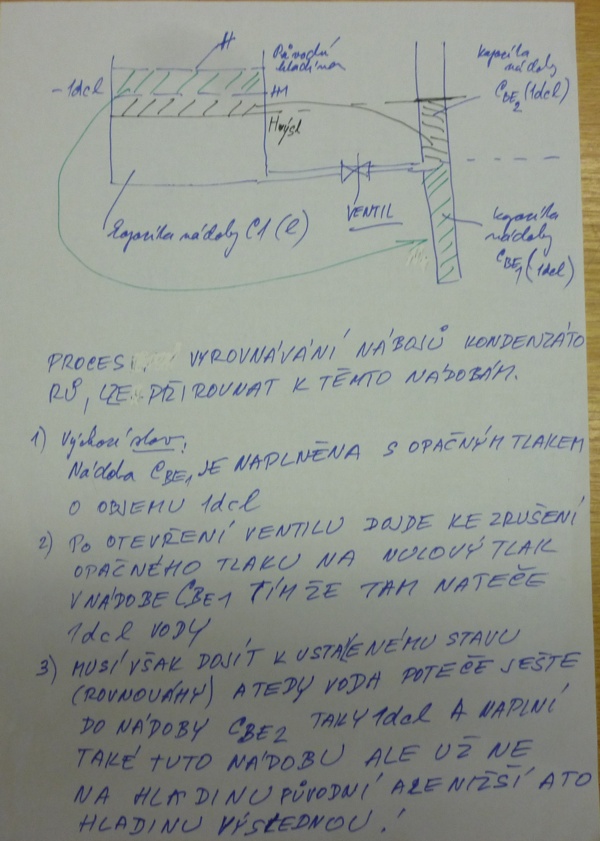 H
Původní
hladina
-1dcl
H1
Hvýsl
kapacita
nádoby
CBE2 (1dcl)
VENTIL
kapacita nádoby C1 (l)
kapacita
nádoby
CBE1 (1dcl)
PROCES VYROVNÁVÁNÍ NÁBOJŮ KONDENZÁTO
RŮ, LZE PŘIROVNAT K TĚMTO NÁDOBÁM.
1) Výchozí stav:
Nádoba CBE1 JE NAPLNĚNA S OPAČNÝM TLAKEM
O OBJEMU 1dcl
2) PO OTEVŘENÍ VENTILU DOJDE KE ZRUŠENÍ
OPAČNÉHO TLAKU NA NULOVÝ TLAK
V NÁDOBE CBE1 TÍM ŽE TAM NATEČE
1dcl VODY
3) MUSÍ VŠAK DOJÍT K USTÁLENÉMU STAVU
(ROVNOVÁHY) A TEDY VODA POTEČE JEŠTE
DO NÁDOBY CBE2 TAKY 1dcl A NAPLNÍ
TAKÉ TUTO NÁDOBU ALE UŽ NE
NA HLADINU PŮVODNÍ ALE NIŽŠÍ A TO
HLADINU VÝSLEDNOU!